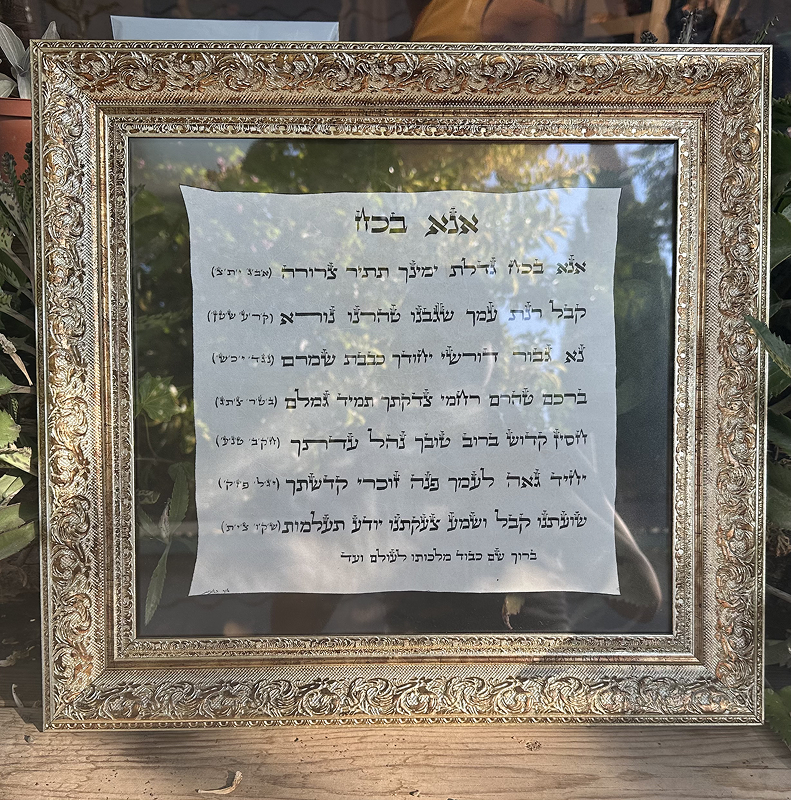 אנא בכח
אנא בכח גדלת ימינך תתיר צרורה (אב״ג ית״ץ)
קבל רנת עמך שגבנו טהרנו נורא (קר״ע שט״ן)
נא גבור דורשי יחודך כבבת שמרם (נג״ד יכ״ש)
ברכם טהרם רחמי צדקתך תמיד גמלם (בט״ר צת״ג)
חסין קדוש ברוב טובך נהל עדתך (חק״ב טנ״ע)
יחיד גאה לעמך פנה זוכרי קדשתך (יג״ל פז״ק)
שועתנו קבל ושמע צעקתנו יודע תעלמות (שק״ו צי״ת)
ברוך שם כבוד מלכותו לעולם ועד